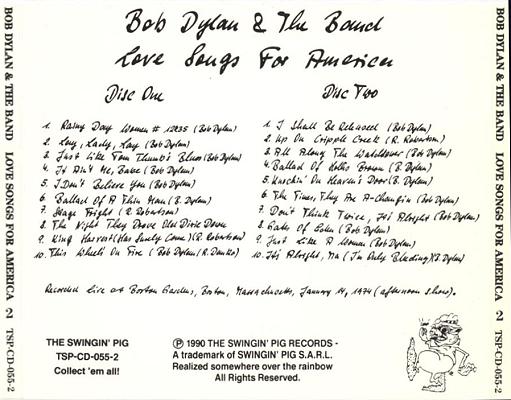 Bob Dylan & The Band
Love Songs For America
Disc One
1. Rainy Day Women # 12&35 (Bob Dylan)
2. Lay, Lady, Lay (Bob Dylan)
3. Just Like Tom Thumb's Blues (Bob Dylan)
4. It Ain't Me, Babe (Bob Dylan)
5. I Don't Believe You (Bob Dylan)
6. Ballad Of A Thin Man (B. Dylan)
7. Stage Fright (R. Robertson)
8. The Night They Drove Old Dixie Down
9. King Harvest (Has Surely Come) (R. Robertson)
10. This Wheel's On Fire (Bob Dylan) (R. Danko)
Disc Two
1. I Shall Be Released (Bob Dylan)
2. Up On Cripple Creek (R. Robertson)
3. All Along The Watchtower (Bob Dylan)
4. Ballad Of Hollis Brown (B. Dylan)
5. Knockin' On Heaven's Door (B. Dylan)
6. The Times They Are A-Changin (Bob Dylan)
7. Don't Think Twice, It's Alright (Bob Dylan)
8. Gates Of Eden (Bob Dylan)
9. Just Like A Woman (Bob Dylan)
10. It's Alright, Ma (I'm Only Bleeding) (B. Dylan)
Recorded live at Boston Gardens, Boston, Massachusetts, January 14, 1974 (afternoon show).
THE SWINGIN' PIG
TSP-CD-055-2
Collect 'em all!
Ⓟ 1990 THE SWINGIN' PIG RECORDS -
A trademark of SWINGIN' PIG S.A.R.L.
Realized somewhere over the rainbow
All Rights Reserved.
BOB DYLAN & THE BAND LOVE SONGS FOR AMERICA 2 TSP-CD-055-2
BOB DYLAN & THE BAND LOVE SONGS FOR AMERICA 2 TSP-CD-055-2